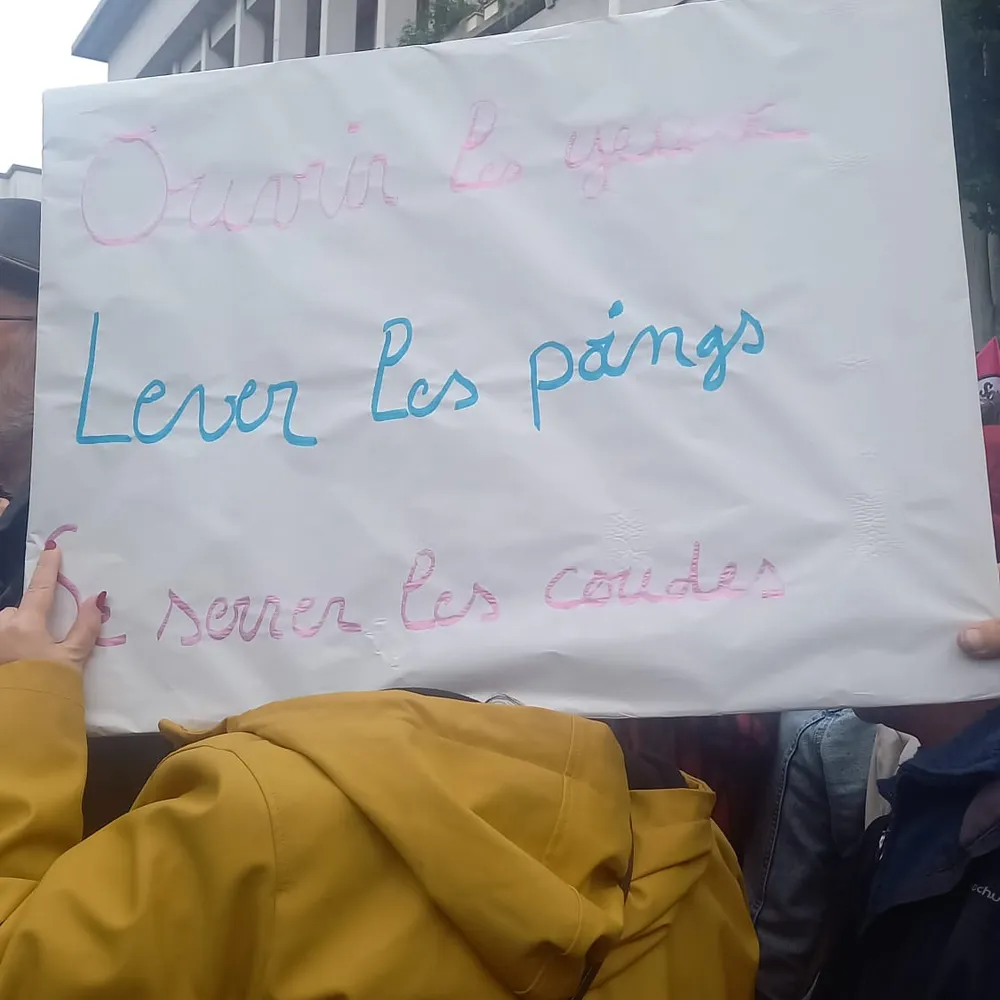 Ouvrir les yeux
Lever les poings
Se serrer les coudes